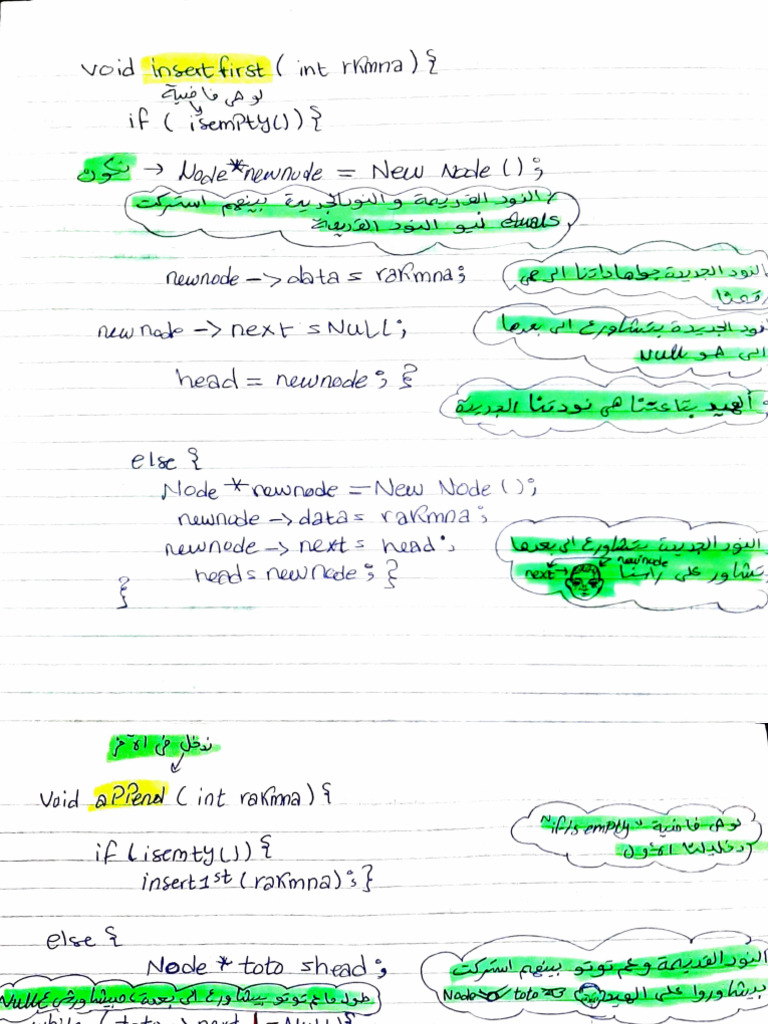 void insertfirst ( int rkmna ) {
لو هي فاضية
if ( isempty()) {
نكون → Node*newnode = New Node ();
النود القديمة والنود الجديدة بينهم استركت
equals نيو النود القديمة
newnode -> data = rakmna;
النود الجديدة جواها داتنا الي هي
رقمنا
newnode -> next = Null;
نود الجديدة بتشاورع الي بعدها
الي هو Null
head = newnode ; }
ألهيد بتاعتنا هي نودتنا الجديدة
else {
Node *newnode = New Node ();
newnode -> data = rakmna;
newnode -> next = head ;
النود الجديدة بتشاورع الي بعدها
head = newnode ; }
بتشاور على راسنا
newnode
next →
}
ندخل في الآخر
void append ( int rakmna ) {
لو هي فاضية "if isempty"
دخليلنا الأول
if (isemty()) {
insert1st (rakmna) ; }
else {
Node * toto = head ;
النود القديمة وعم توتو بينهم استركت
بيشاوروا على الهيد
Node toto
طول ما عم توتو بيشاورع الي بعده، مبيشاورش ع Null
while ( toto -> next != Null) {